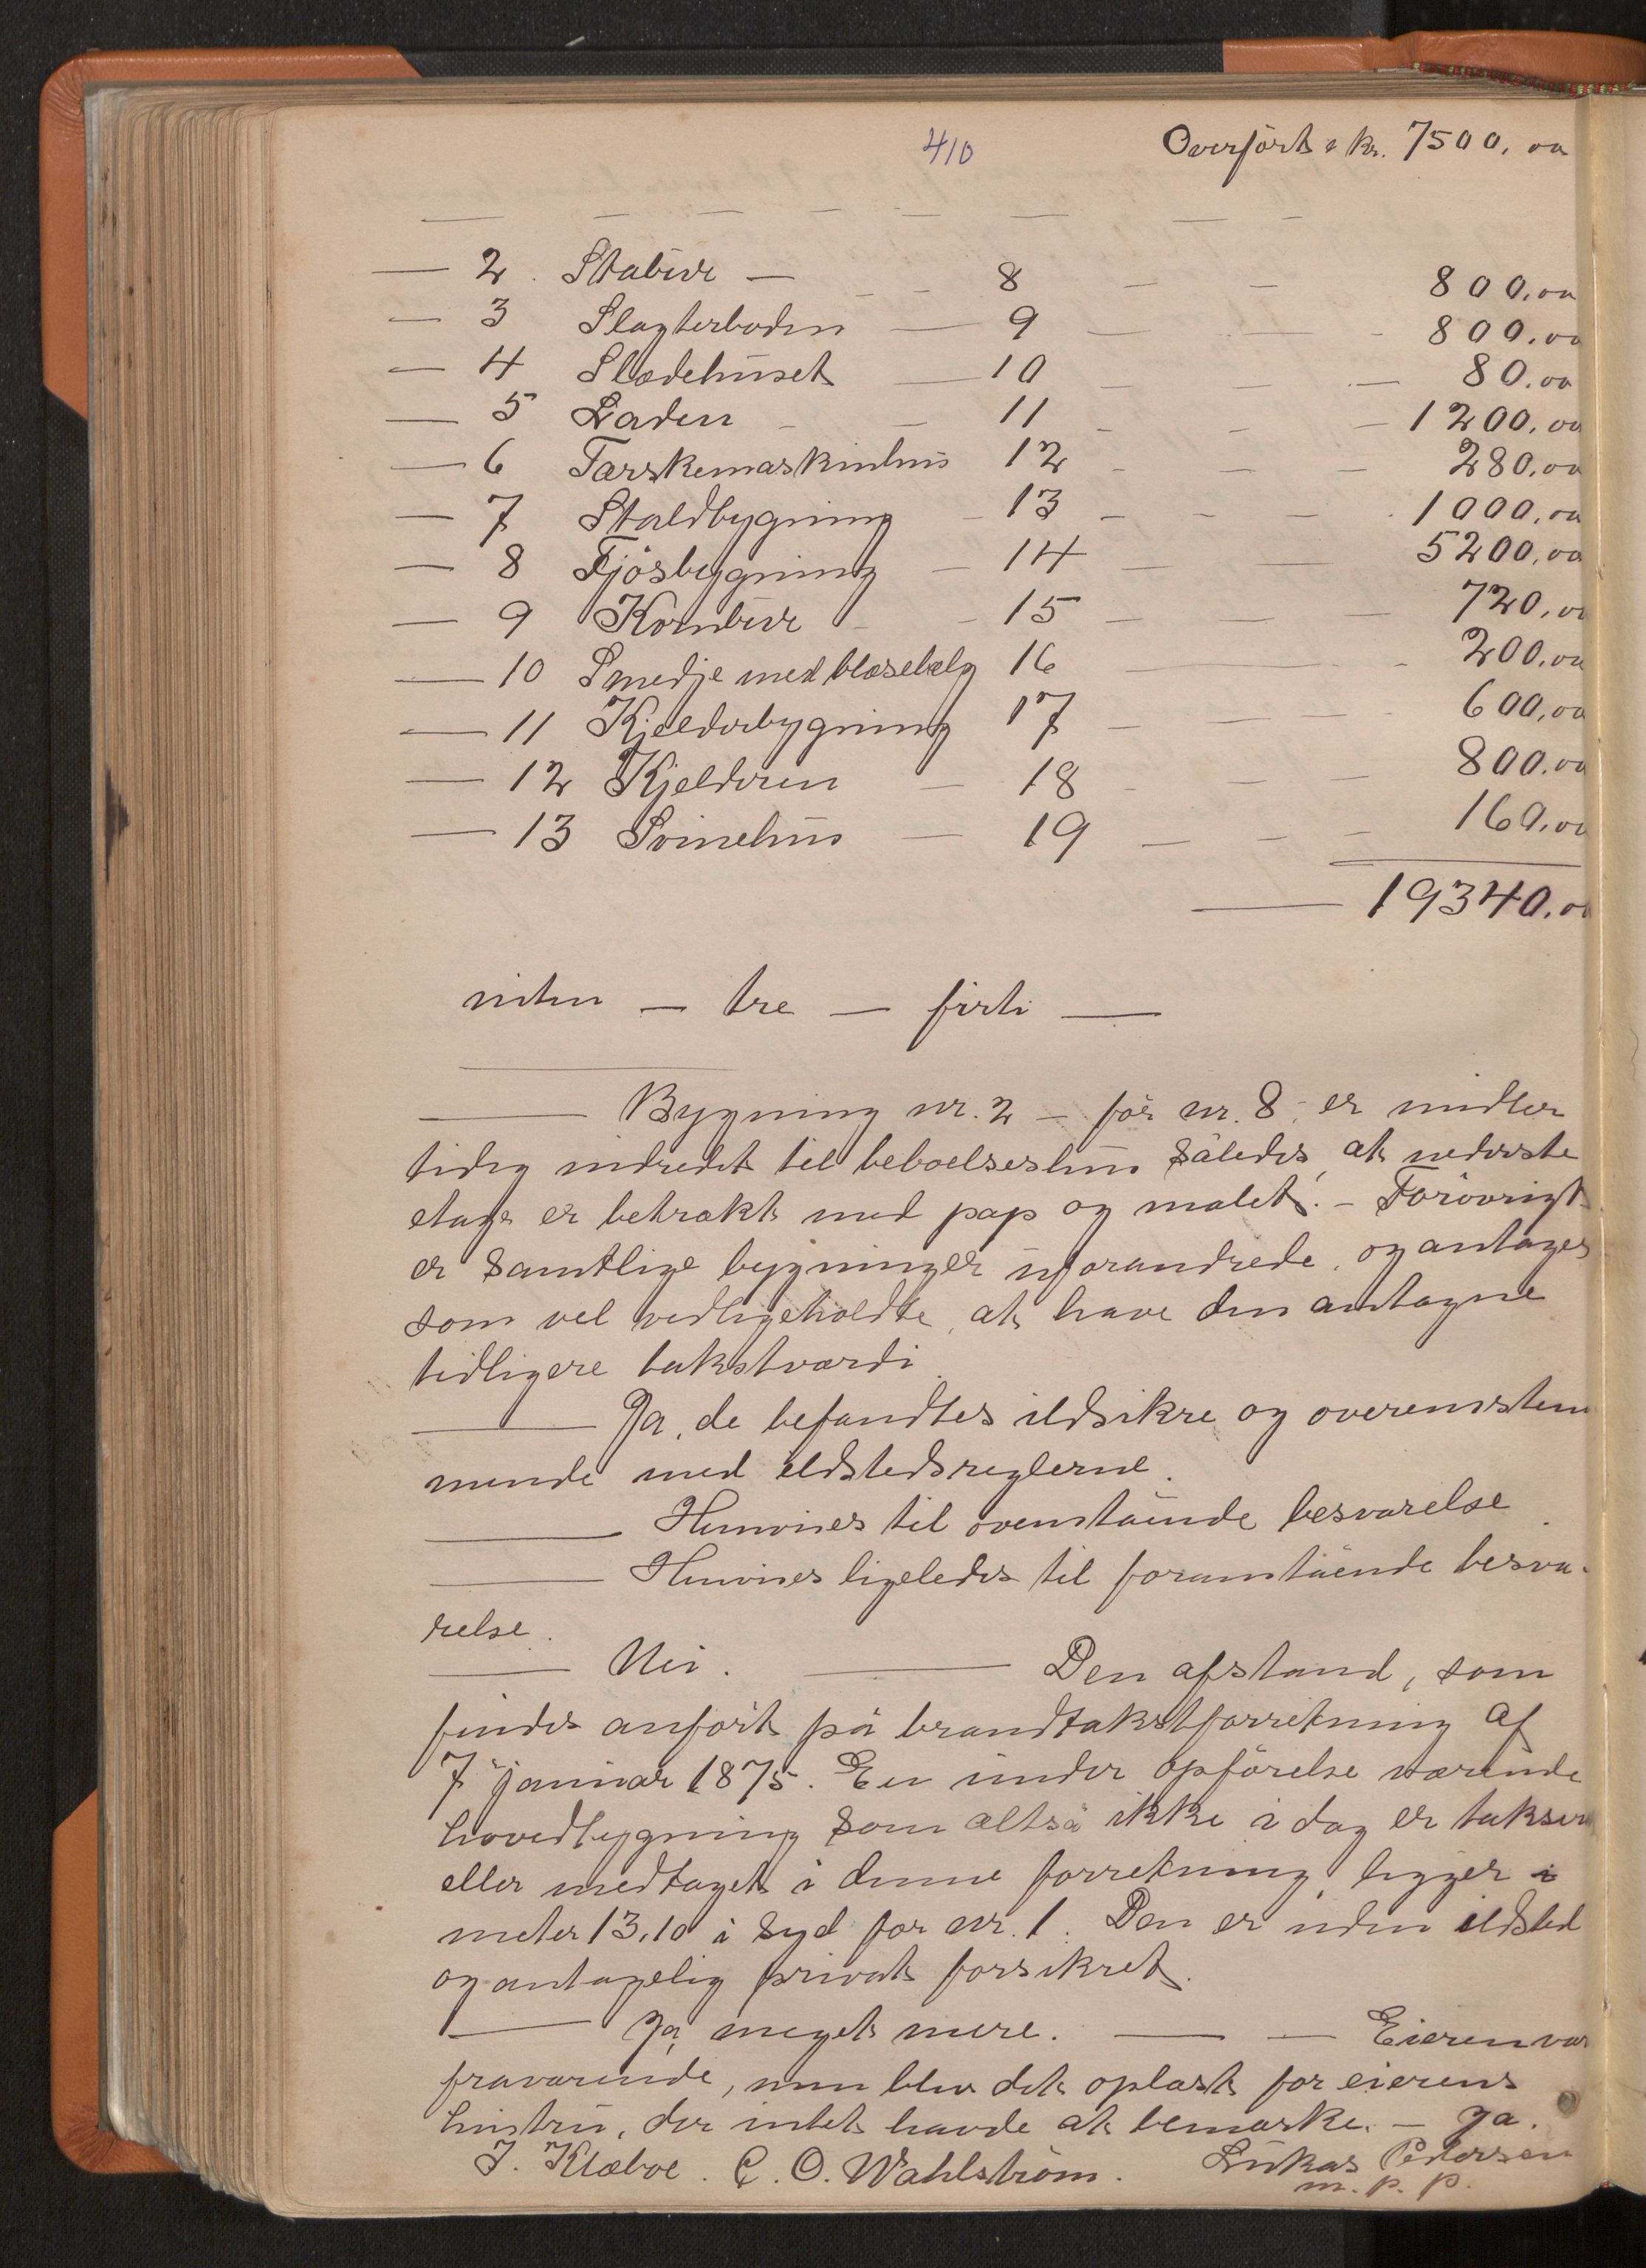 410 Overført kr. 7500,00
— — — — — — — —
— 2. Stabur — 8 — — 800,00
— 3 Slagterboden — 9 — — 800,00
— 4 Slædehuset — 10 — — — 80,00
— 5 Laden — — 11 — — — 1200,00
— 6 Tærskemaskinhus 12 — — — 280,00
— 7 Staldbygning — 13 — — — 1000,00
— 8 Fjøsbygning — 14 — — 5200,00
— 9 Kornbur — 15 — — — 720,00
— 10 Smedje med blæsebelg 16 — — 200,00
— 11 Kjelderbygning 17 — — — 600,00
— 12 Kjelderen — 18 — — — 800,00
— 13 Svinehus — 19 — — — 160,00
— 19340,00
nitten — tre — firti —
— Bygning nr. 2 — før nr. 8, er midler
tidig indredet til beboelseshus således, at nederste
etage er betrukket med pap og malet. — Forøvrigt
er samtlige bygninger uforandrede, og antages
som vel vedligeholdte, at have den antagne
tidligere takstværdi
— Ja, de befandtes ildsikre og overensstem
mende med ildstedsreglerne.
— Henvises til ovenstående besvarelse.
— Henvises ligeledes til foranstående besva-
relse.
— Nei. — Den afstand, som
findes anført på brandtakstforretning af
7 januar 1875. En under opførelse værende
hovedbygning som altså ikke i dag er takser
eller medtaget i denne forretning, ligger
meter 13,10 i syd for nr. 1. Den er uden ildsted
og antagelig privat forsikret.
— Ja, meget mere. — — Eieren var
fraværende, men blev det oplæst for eierens
hustru, der intet havde at bemærke. — Ja.
J. Klæboe. C. O. Wahlstrøm. Lukas Pedersen
m. p. p.